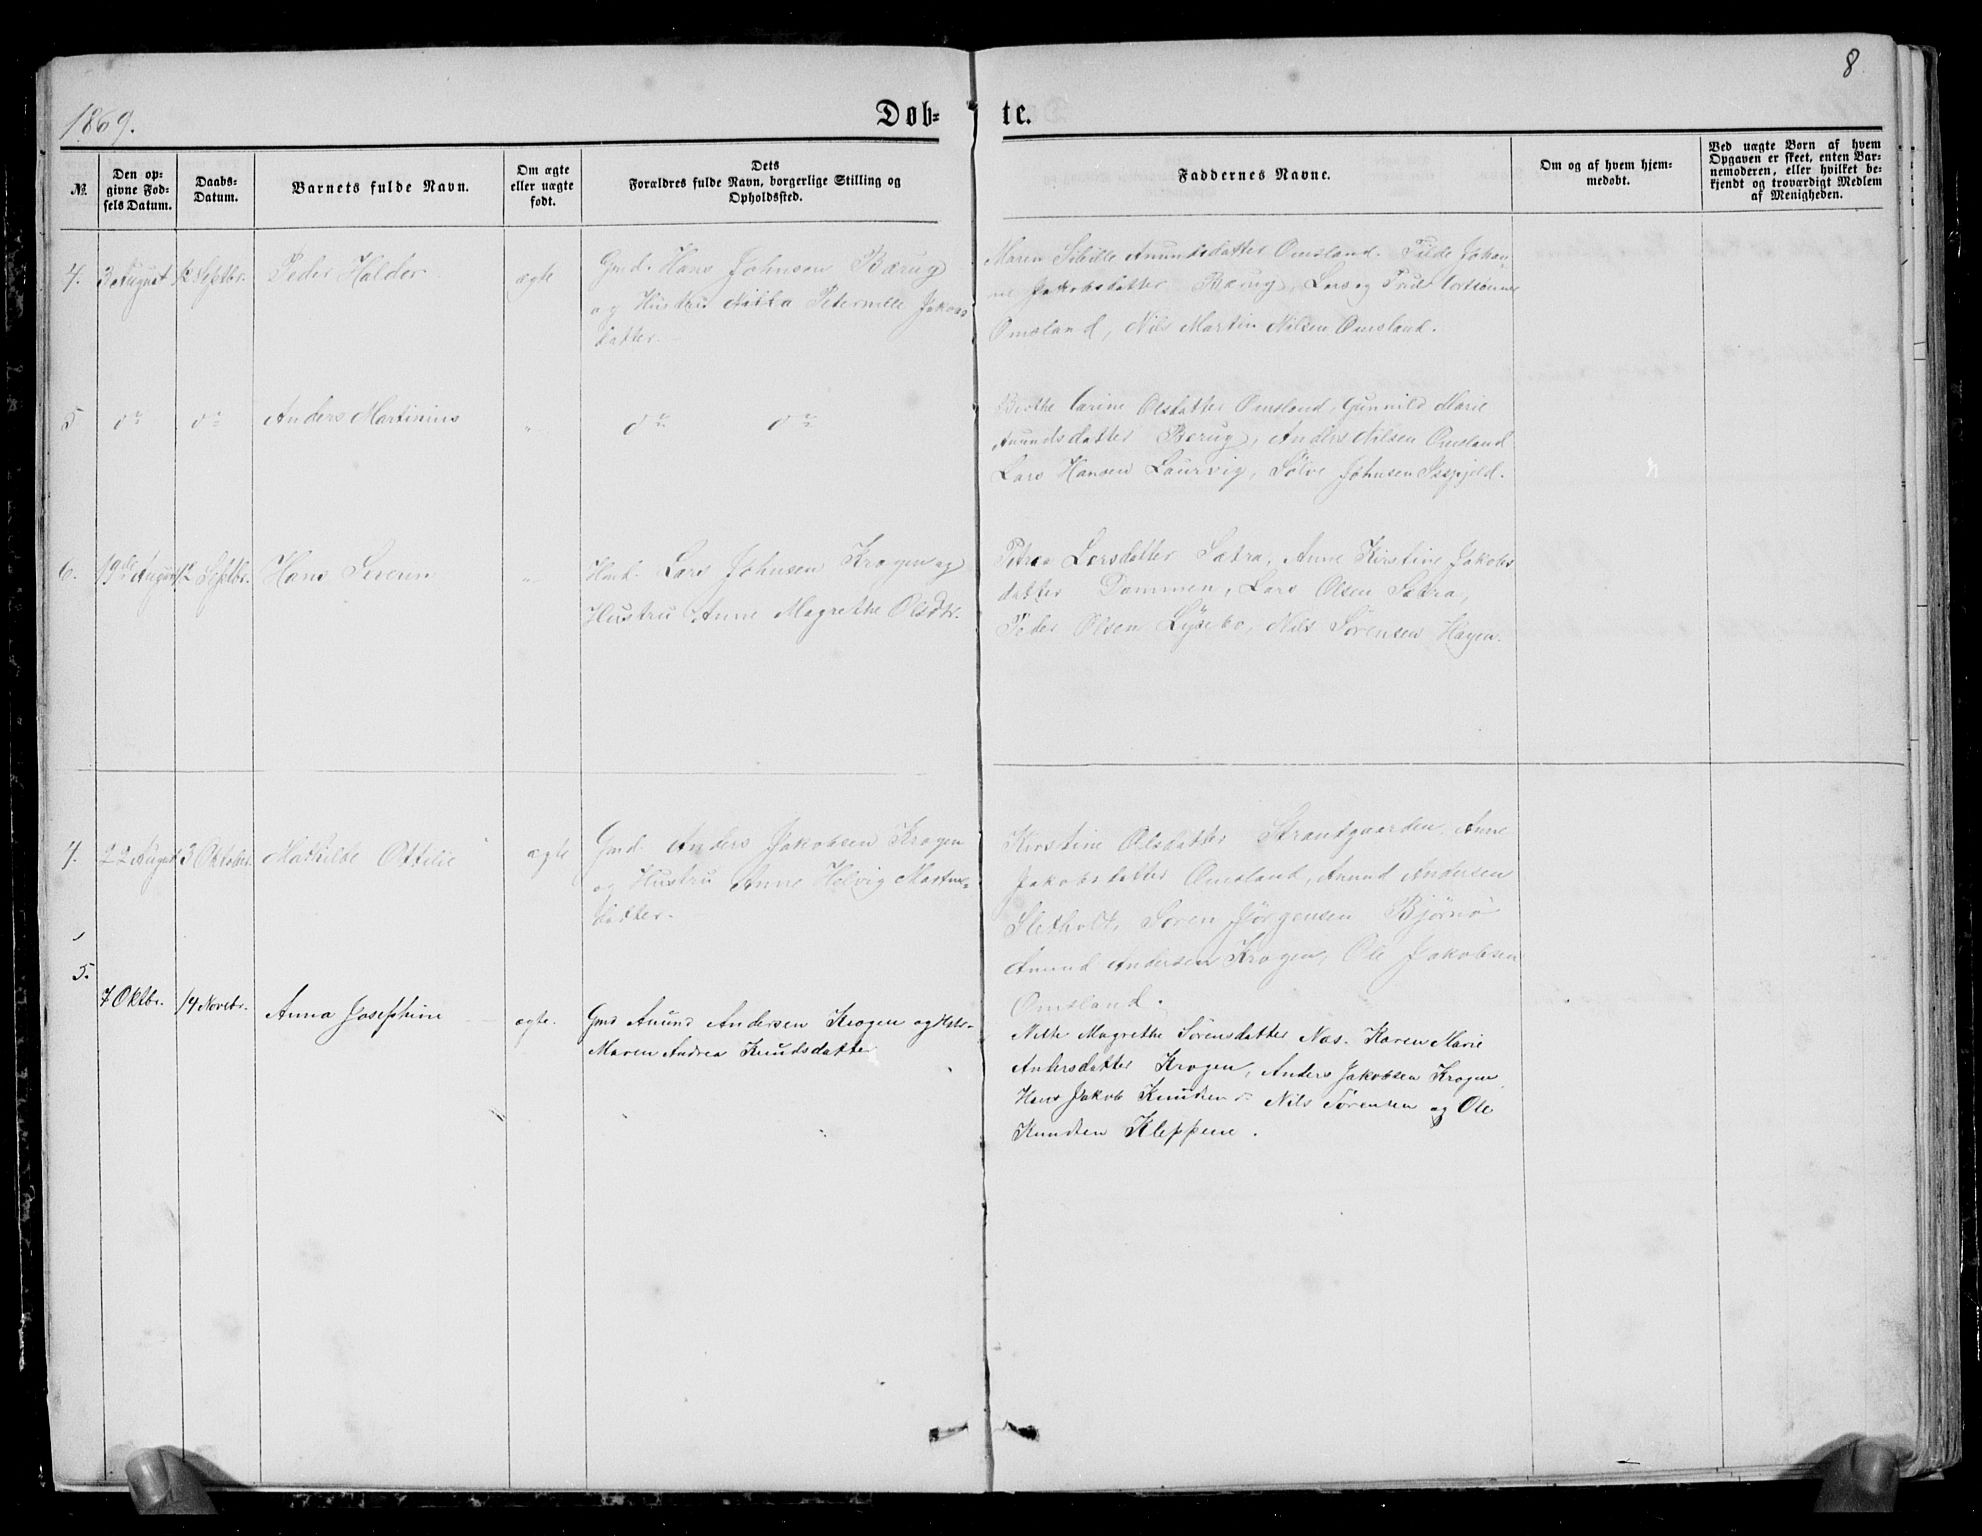 8
1869.
Døb- te.
№.
Den opgivne Fødsels Datum.
Daabs-Datum.
Barnets fulde Navn.
Om ægte eller uægte født.
Dets Forældres fulde Navn, borgerlige Stilling og Opholdssted.
Faddernes Navne.
Om og af hvem hjemmedøbt.
Ved uægte Børn af hvem Opgaven er skeet, enten Barnemoderen, eller hvilket bekjendt og troværdigt Medlem af Menigheden.
4. 3 August 12 Septbr. Peder Halder ægte
Gmd. Hans Johnsen Bærug
og Hustru Peternelle Jakobs
datter.
Maren Sibille Anundsdatter Omsland. Tilde Johan
ne Jakobsdatter Bærug, Lars og
Omsland, Nils Martin Nilsen Omsland.
5 do do Anders Martinius " do do
Berthe Carine Olsdatter Omsland, Gunnild Marie
Anundsdatter Bærug, Anders Nilsen Omsland
Lars Hansen Laurvig, Sølve Johnsen
6. 19de August 12 Septbr. Hans Severin "
Lars Johnsen Krogen og
Hustru Anne Magrethe Olsdtr.
Petrea Larsdatter Sætra, Anne Kirstine Jakobs
datter Dammen, Lars Olsen Sætra,
Peder Olsen Lysebo, Nils Sørensen Hagen.
4. 22 August 3 Oktober Mathilde Ottilie ægte
Gmd. Anders Jakobsen Krogen
og Hustru Anne Helvig
datter.
Kirstine Olsdatter Strandgaarden, Anne
Jakobsdatter Omsland, Anund Andersen
Sletholt, Søren Jørgensen Bjørnø
Anund Andersen Krogen, Ole Jakobsen
Omsland.
5. 7 Oktbr. 14 Novebr. Anna Josephine ægte.
Gmd Anund Andersen Krogen og Hstr.
Maren Andrea Knudsdatter
Magrethe Sørensdatter Næs. Karen Marie
Andersdatter Krogen, Anders Jakobsen Krogen,
Hans Jakob Knudsen do Nils Sørensen og Ole
Knudsen Kleppene.